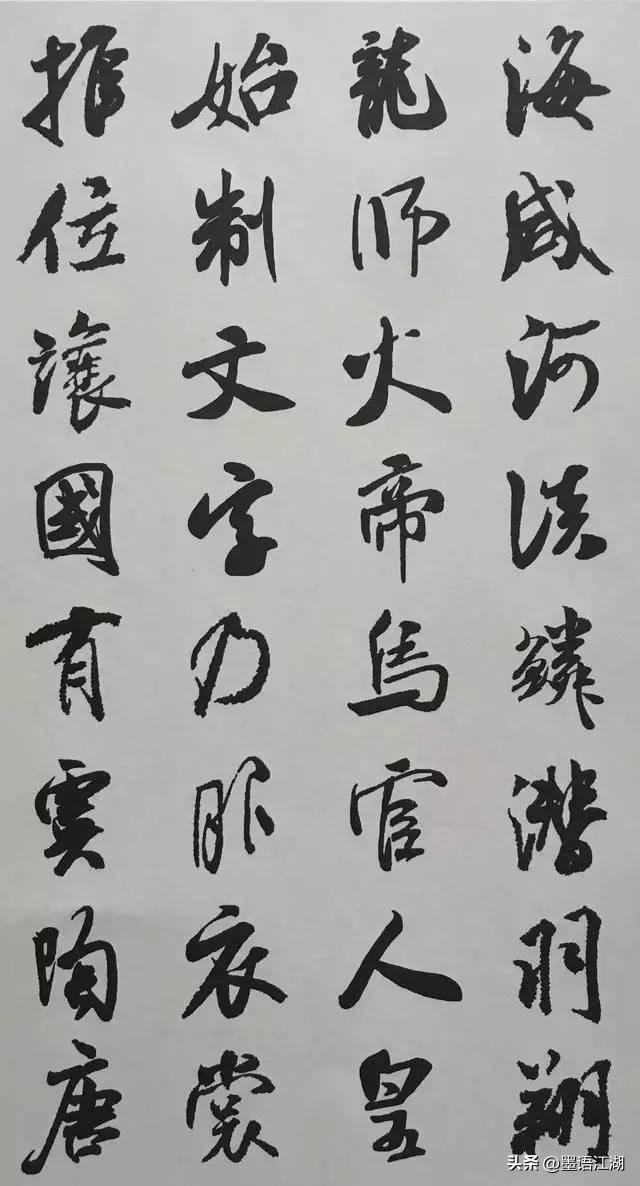 海咸河淡鱗潛羽翔
龍師火帝鳥官人皇
始制文字乃服衣裳
推位讓國有虞陶唐
头条 @墨语江湖